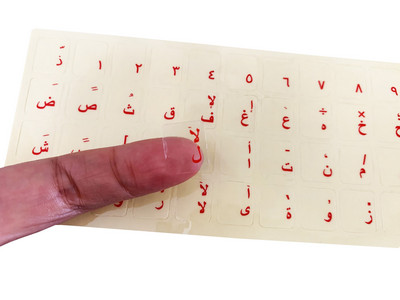 ذّ ١ ٢ ٣ ٤ ٥ ٦ ٧ ٨ ٩
ضَ صً ثُ ق لإ ف إ غ ع ÷ ه × خ
أ ا ت ن م
ر لآ لا ى ة و ز